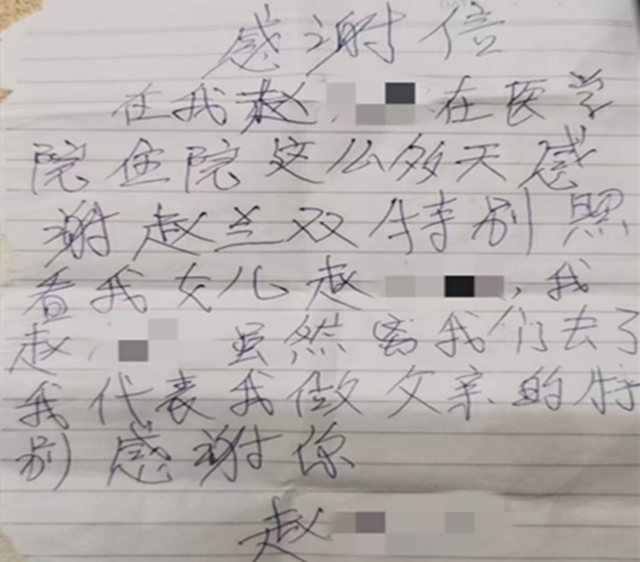 感谢信
在我赵 在医学
院住院这么多天感
谢赵兰双特别照
看我女儿赵 ,我
赵 虽然离我们去了
我代表我做父亲的特
别感谢你
赵